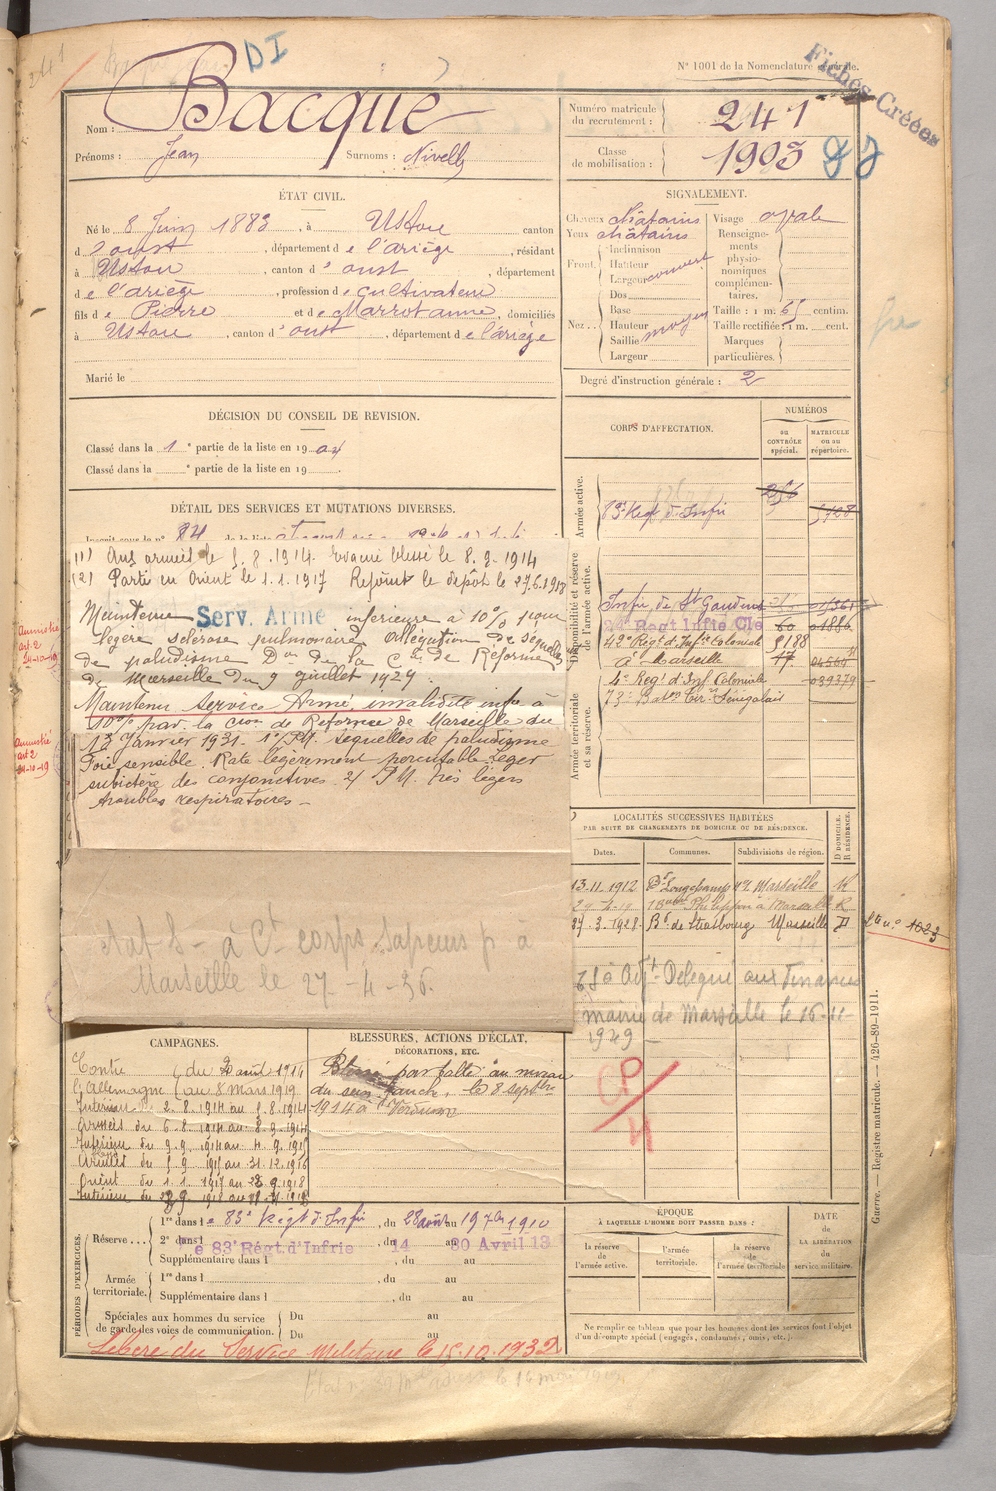 241
DI
N° 1001 de la Nomenclature générale.
Fiches Créées
Nom : Bacqué
Prénoms : Jean Surnoms : Nivelle
Numéro matricule du recrutement : 241
Classe de mobilisation : 1903
ÉTAT CIVIL.
Né le 8 Juin 1883, à Ustou canton
d'oust, département de l'ariège, résidant
à Ustou, canton d'oust, département
de l'ariège, profession de cultivateur
fils de Pierre et de Marrot anne, domiciliés
à Ustou, canton d'oust, département de l'ariège
Marié le
SIGNALEMENT.
Cheveux châtains
Yeux châtains
Front. Inclinaison
Hauteur
Largeur couvert
Nez. Dos
Base
Hauteur
Saillie moyen
Largeur
Visage ovale
Renseignements physionomiques complémentaires.
Taille : 1 m. 65 centim.
Taille rectifiée : 1 m. cent.
Marques particulières.
Degré d'instruction générale : 2
DÉCISION DU CONSEIL DE REVISION.
Classé dans la 1e partie de la liste en 1904
Classé dans la e partie de la liste en 19 .
CORPS D'AFFECTATION.
NUMÉROS
au CONTRÔLE spécial.
MATRICULE ou au répertoire.
Armée active.
83e Regt d'Infie
Disponibilité et réserve de l'armée active.
Infie de St Gaudens
24e Regt Infie Cle 60 01886
42e Regt d'Infie Coloniale 9188
à Marseille 17
4e Regt d'Inf Coloniale 039379
73e Baton Tir. Sénégalais
Armée territoriale et sa réserve.
DÉTAIL DES SERVICES ET MUTATIONS DIVERSES.
(1) Aux armées le 5.8.1914. Evacué blessé le 8.9.1914
(2) Parti en Orient le 1.1.1917 Rejoint le dépôt le 27.6.1918
Maintenu Serv. Armé inférieure à 10% pour
légère sclérose pulmonaire Allégation de séquelles
de paludisme Don de la Con de Réforme
de Marseille du 9 juillet 1929.
Maintenu Service Armé, invalidité infre à
10% par la Cion de Réforme de Marseille du
13 Janvier 1931. 1°/ P.M. séquelles de paludisme
Foie sensible. Rate légèrement percutable. Léger
subictère des conjonctives. 2°/ P.M. très légers
troubles respiratoires –
Amnistié art. 2 24-10-19
Amnistié art 2 24-10-19
Aat S – à Ct corps Sapeurs p. à
Marseille le 27 – 4 – 36.
LOCALITÉS SUCCESSIVES HABITÉES
PAR SUITE DE CHANGEMENTS DE DOMICILE OU DE RÉSIDENCE.
Dates. Communes. Subdivisions de région. D DOMICILE. R RÉSIDENCE.
13.11.1912 Bd Longchamp Marseille R
Philippon à Marseille R
27.3.1928 Bd de Strasbourg Marseille D
1023
à Adjt Délégué aux Finances
mairie de Marseille le 16-11-
1929 –
CP/4
CAMPAGNES.
Contre du 2 août 1914
l'Allemagne au 8 Mars 1919
Intérieur du 2.8.1914 au 5.8.1914
Armées du 6.8.1914 au 8.9.1914
Intérieur du 9.9.1914 au 4.9.1915
Armées du 5.9.1915 au 31.12.1916
Orient du 1.1.1917 au 28.9.1918
BLESSURES, ACTIONS D'ÉCLAT, DÉCORATIONS, ETC.
Blessé par balle au niveau
du sein gauche, le 8 septbre
1914 à Verdun
PÉRIODES D'EXERCICES.
Réserve... 1re dans le 83e Régt d'Infie, du 28 août au 19 7bre 1910
2e dans le 83e Régt. d'Infrie, du 14 au 30 Avril 13
Supplémentaire dans l , du au
Armée territoriale. 1re dans l , du au
Supplémentaire dans l , du au
Spéciales aux hommes du service de garde des voies de communication. Du au
Du au
ÉPOQUE
À LAQUELLE L'HOMME DOIT PASSER DANS :
la réserve de l'armée active.
l'armée territoriale.
la réserve de l'armée territoriale
DATE DE LA LIBÉRATION du service militaire.
Ne remplir ce tableau que pour les hommes dont les services font l'objet d'un décompte spécial (engagés, condamnés, omis, etc.).
Libéré du Service Militaire le 15.10.1932
Guerre. — Registre matricule. — 426-89-1911.